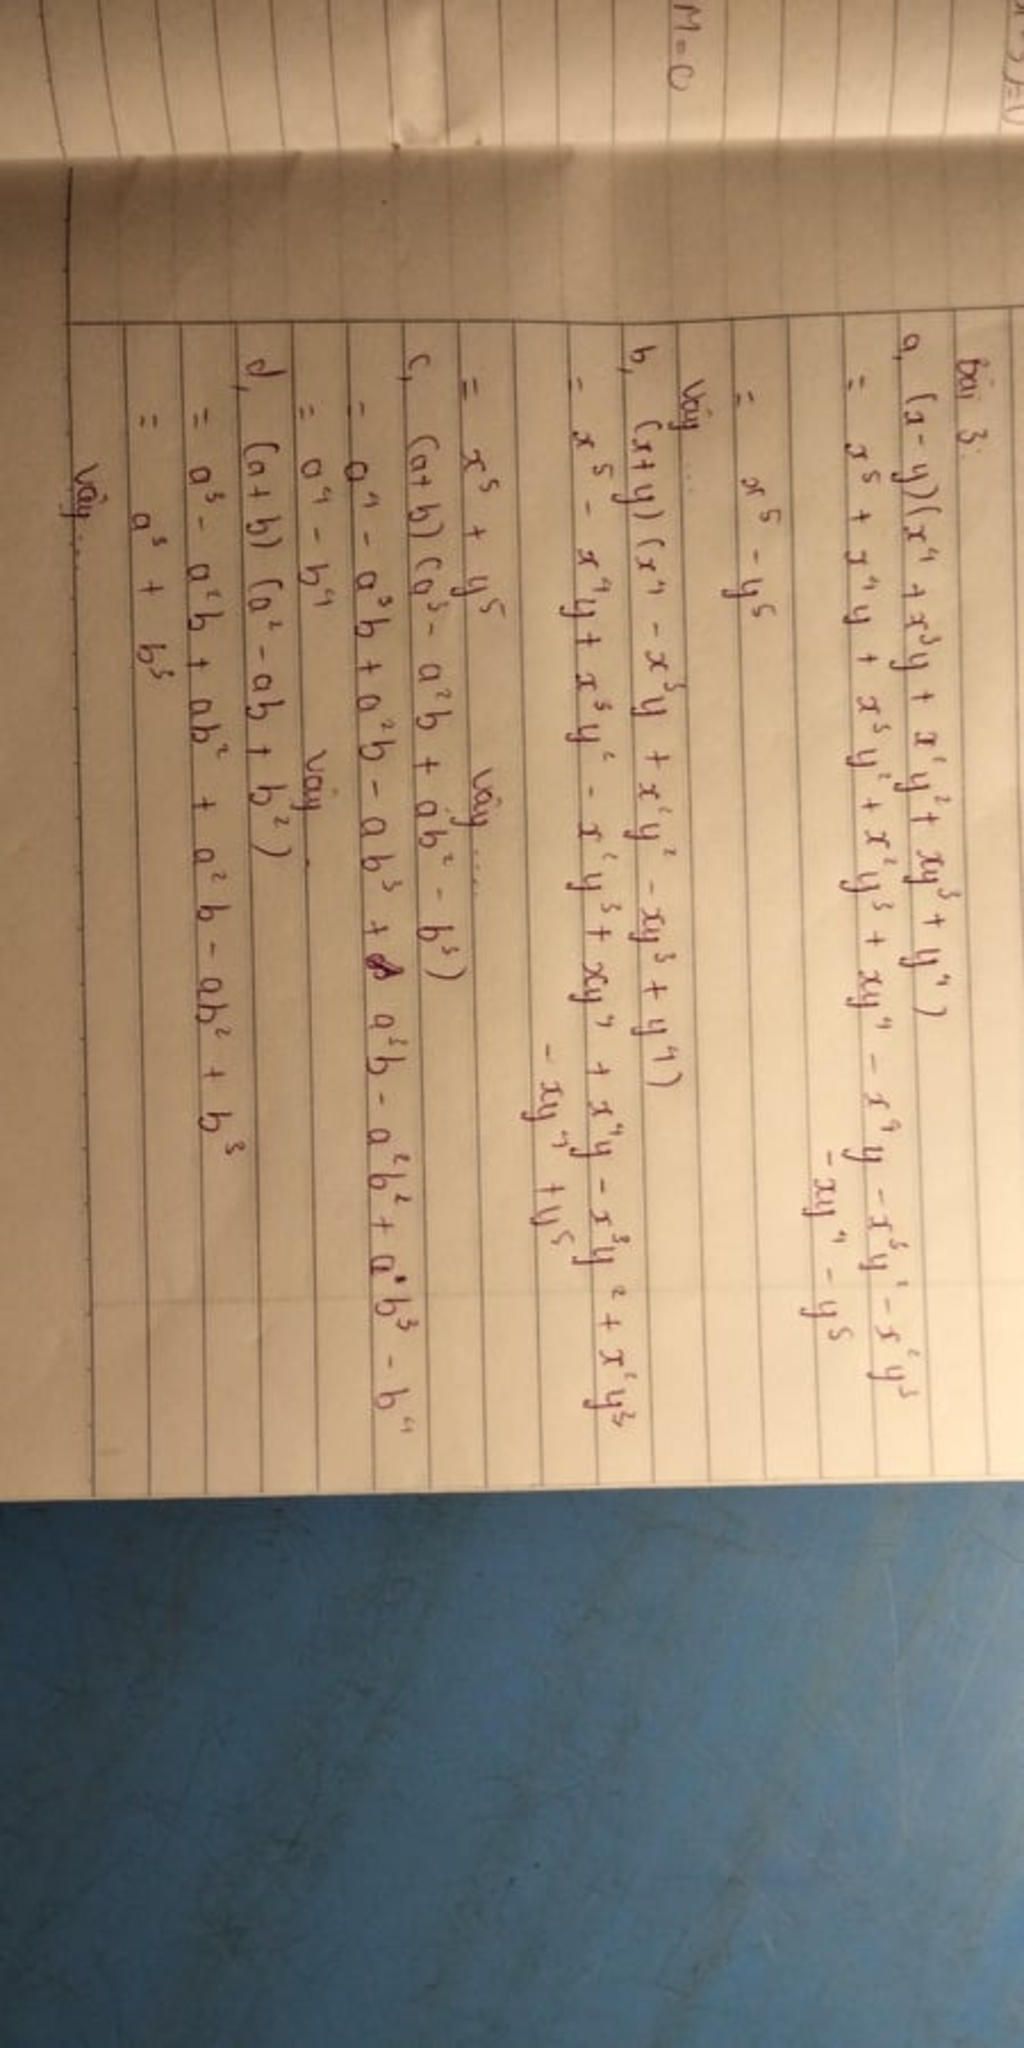 x + 5) = 0
M = 0
bài 3.
a, (x - y)(x⁴ + x³y + x²y² + xy³ + y⁴)
= x⁵ + x⁴y + x³y² + x²y³ + xy⁴ - x⁴y - x³y² - x²y³
- xy⁴ - y⁵
= x⁵ - y⁵
Vậy ...
b, (x+y)(x⁴ - x³y + x²y² - xy³ + y⁴)
= x⁵ - x⁴y + x³y² - x²y³ + xy⁴ + x⁴y - x³y² + x²y³
- xy⁴ + y⁵
= x⁵ + y⁵ Vậy .....
c, (a+b)(a³ - a²b + ab² - b³)
= a⁴ - a³b + a²b - ab³ + a³b - a²b² + a b³ - b⁴
= a⁴ - b⁴ Vậy .
d, (a+b)(a² - ab + b²)
= a³ - a²b + ab² + a²b - ab² + b³
= a³ + b³
Vậy ....